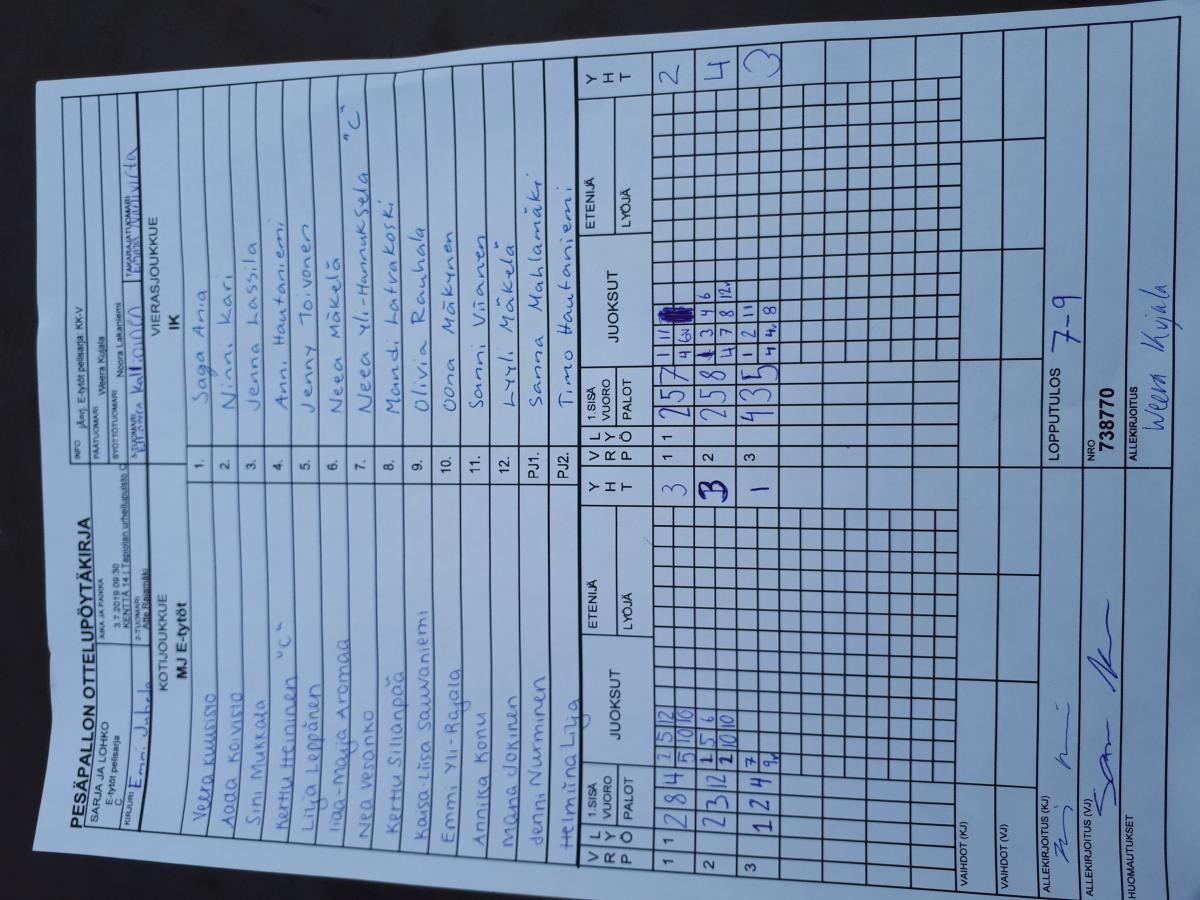 PESÄPALLON OTTELUPÖYTÄKIRJA
SARJA JA LOHKO
E-tytöt pelisarja
C
AIKA JA PAIKKA
3.7.2019 09:30
KENTTÄ 14 | Tapiolan urheilupuisto C
INFO järj. E-tytöt pelisarja: KK-V
PÄÄTUOMARI Weera Kujala
SYÖTTÖTUOMARI Noora Lakaniemi
KIRJURI Emmi Juhela
2-TUOMARI
Atte Rajamäki
3-TUOMARI
TAKARAJATUOMARI
KOTIJOUKKUE
MJ E-tytöt
VIERASJOUKKUE
IK
Veera Kuusisto 1. Saga Ania
Aada Koivisto 2. Ninni Kari
Sini Mukkala 3. Jenna Lassila
Kerttu Heininen "C" 4. Anni Hautaniemi
Lilja Leppänen 5. Jenny Toivonen
Iiaa-Maija Aromaa 6. Neea Mäkelä
Nea Veranko 7. Neea Yli-Hannuksela "C"
Kerttu Sillanpää 8. Mandi Latvakoski
Kaisa-Liisa Sauvaniemi 9. Olivia Rauhala
Emmi Yli-Rajala 10. Oona Mäkynen
Annika Konu 11. Sanni Viianen
Mana Jokinen 12. Lyyli Mäkelä
Jenni Nurminen PJ1. Sanna Mahlamäki
Helmiina Lilja PJ2. Timo Hautaniemi
VRP LYÖ 1.SISÄ VUORO PALOT JUOKSUT ETENIJÄ LYÖJÄ YHT VRP LYÖ 1.SISÄ VUORO PALOT JUOKSUT ETENIJÄ LYÖJÄ YHT
1 1 2 8 4 2 5 12 3 1 1 2 5 7 1 11 2
5 10 10 4 6v
2 2 3 12 2 5 6 3 2 2 5 8 1 3 4 6 4
2 10 10 4 7 8 12v
3 1 2 4 7 1 3 4 3 5 1 2 11 3
9v 4 4v 8
VAIHDOT (KJ)
VAIHDOT (VJ)
ALLEKIRJOITUS (KJ)
LOPPUTULOS 7-9
ALLEKIRJOITUS (VJ)
NRO
738770
HUOMAUTUKSET
ALLEKIRJOITUS
Weera Kujala